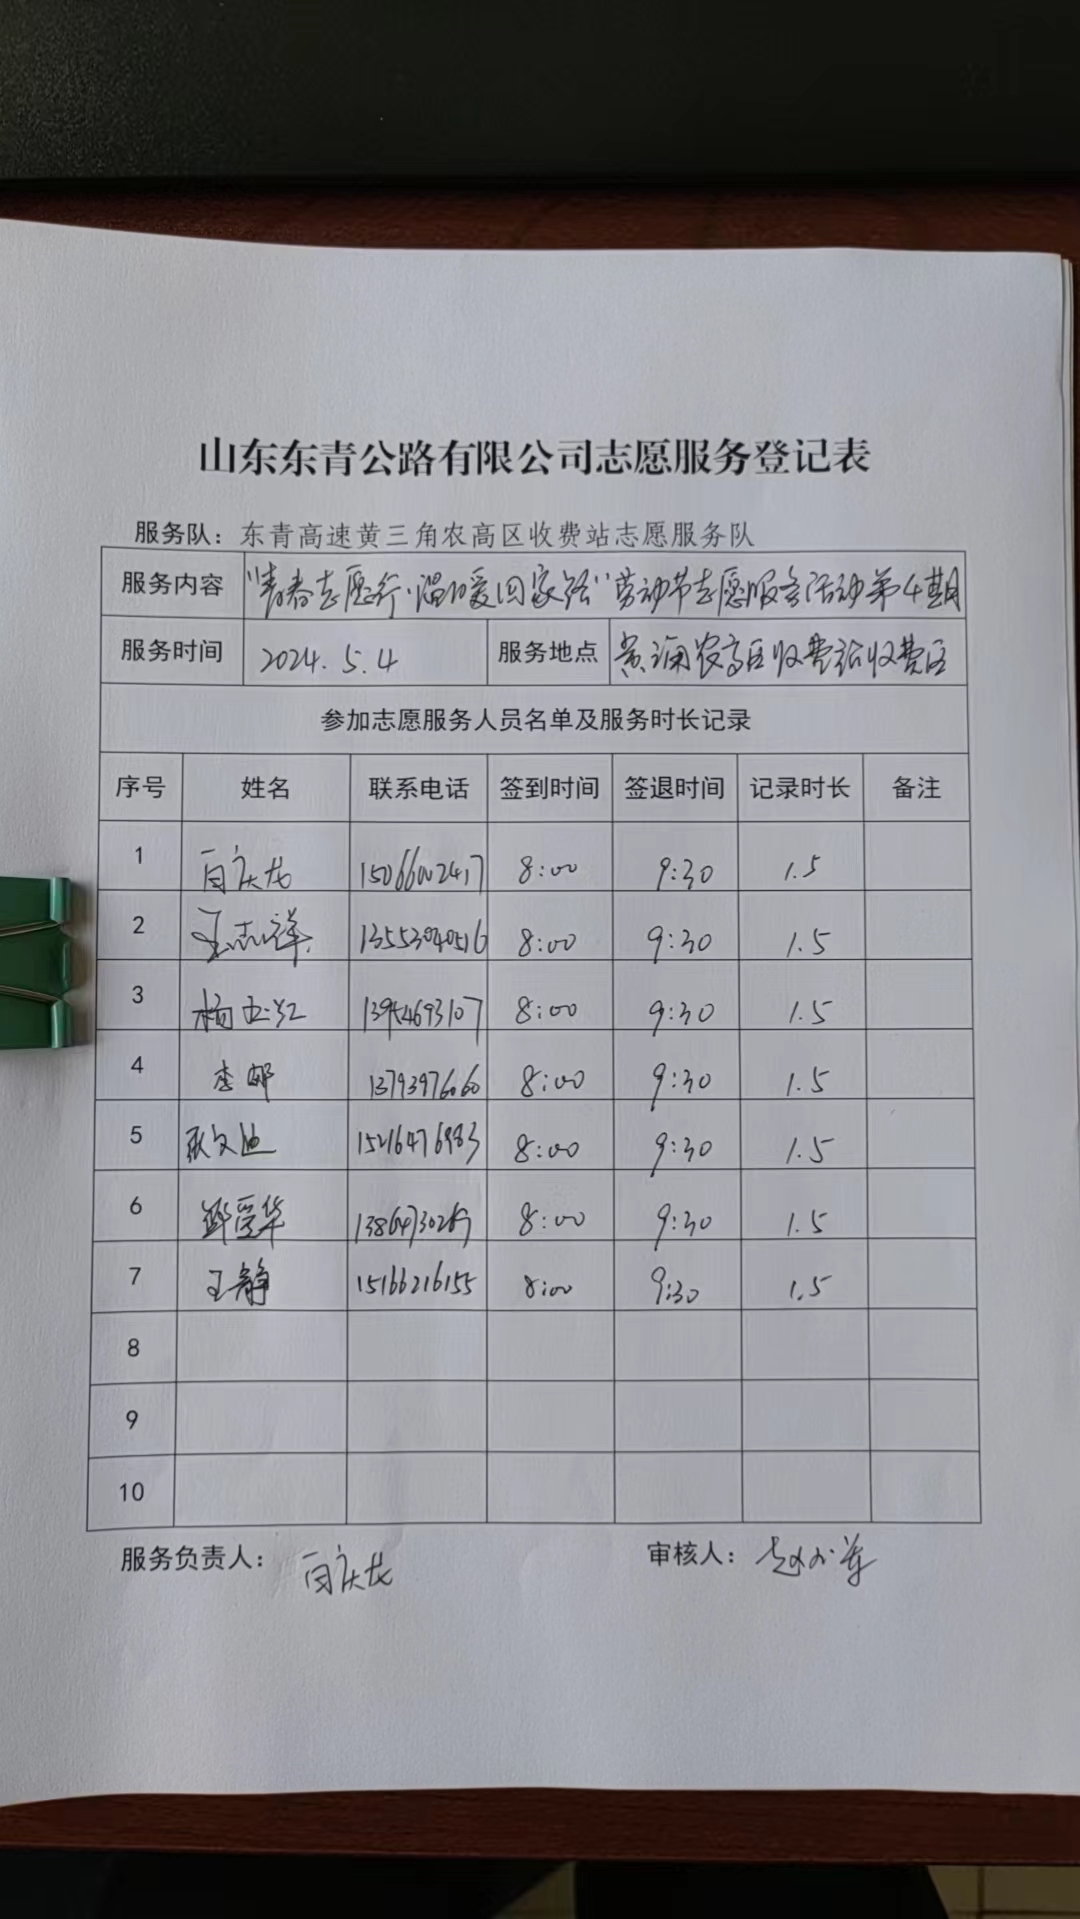 山东东青公路有限公司志愿服务登记表
服务队：东青高速黄三角农高区收费站志愿服务队
服务内容 "青春志愿行·温暖回家路"劳动节志愿服务活动第4期
服务时间 2024.5.4 服务地点 农高区收费站收费区
参加志愿服务人员名单及服务时长记录
序号 姓名 联系电话 签到时间 签退时间 记录时长 备注
1 百庆龙 15066002417 8:00 9:30 1.5
2 王志祥 13553040516 8:00 9:30 1.5
3 8:00 9:30 1.5
4 13793976060 8:00 9:30 1.5
5 耿文迪 15216476983 8:00 9:30 1.5
6 8:00 9:30 1.5
7 王静 15166216155 8:00 9:30 1.5
8
9
10
服务负责人：百庆龙 审核人：